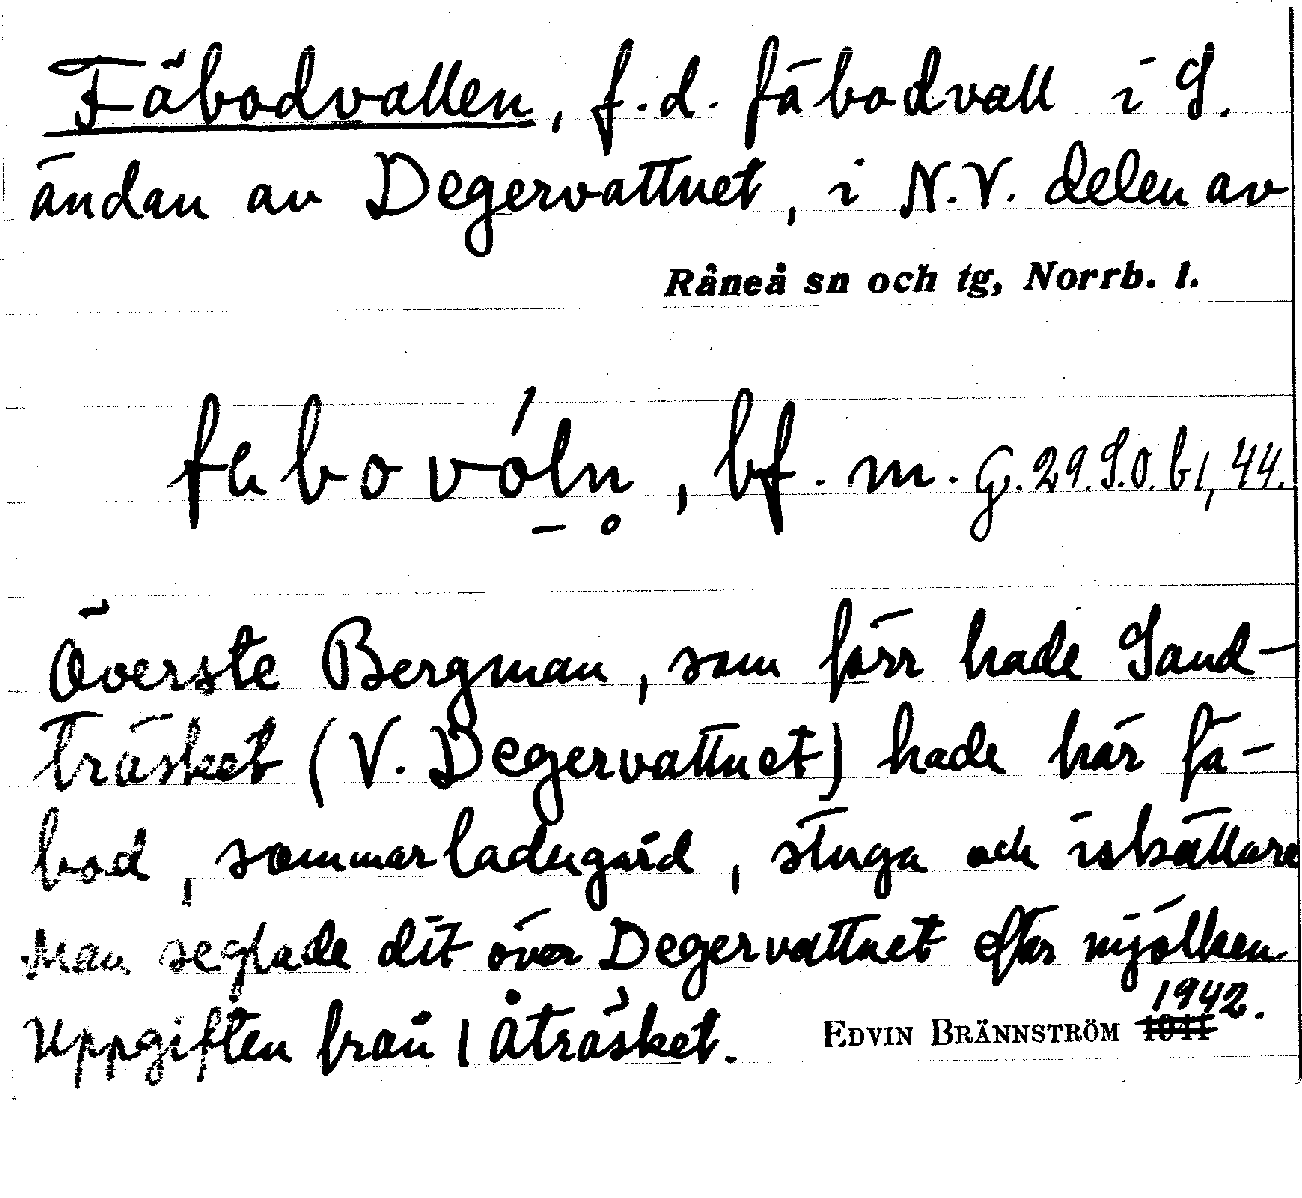 Fäbodvallen, f.d. fäbodvall i S.
ändan av Degervattnet, i N.V. delen av
Råneå sn och tg, Norrb. l.
bf. m. G. 29. S.O. b1, 44.
Överste Bergman, som förr hade Sand-
träsket (V. Degervattnet) hade här fä-
bod, sommarladugård, stuga och iskällare
Man seglade dit över Degervattnet efter mjölken
1942.
Uppgiften från 1 Åträsket. EDVIN BRÄNNSTRÖM 1941